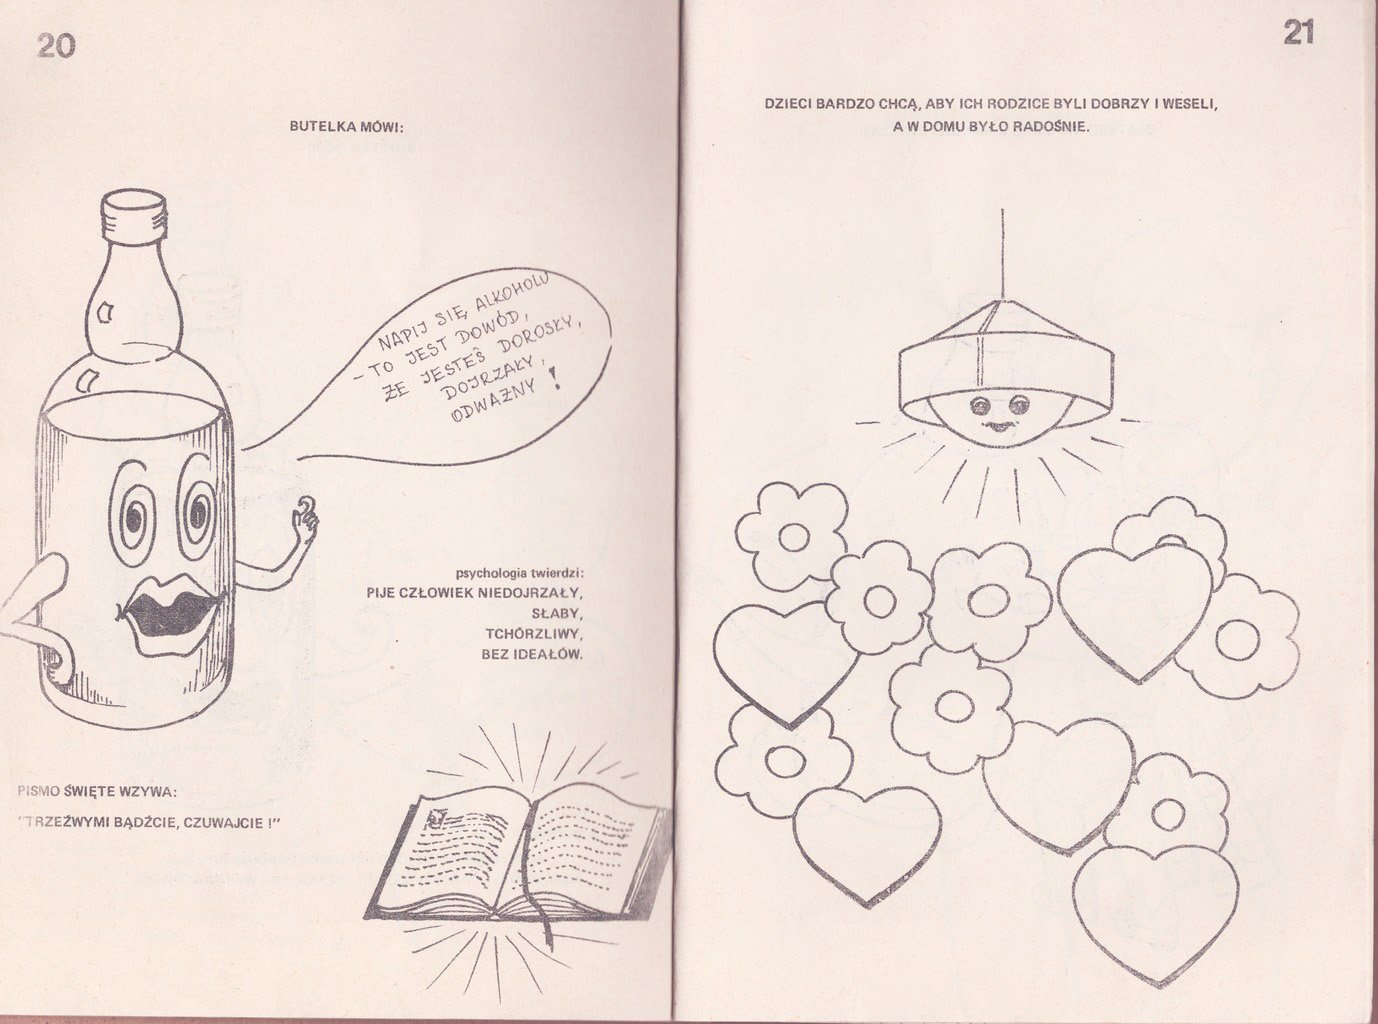 20
BUTELKA MÓWI:
NAPIJ SIĘ ALKOHOLU
- TO JEST DOWÓD,
ŻE JESTEŚ DOROSŁY,
DOJRZAŁY,
ODWAŻNY !
psychologia twierdzi:
PIJE CZŁOWIEK NIEDOJRZAŁY,
SŁABY,
TCHÓRZLIWY,
BEZ IDEAŁÓW.
PISMO ŚWIĘTE WZYWA:
"TRZEŹWYMI BĄDŹCIE, CZUWAJCIE !"
21
DZIECI BARDZO CHCĄ, ABY ICH RODZICE BYLI DOBRZY I WESELI,
A W DOMU BYŁO RADOŚNIE.